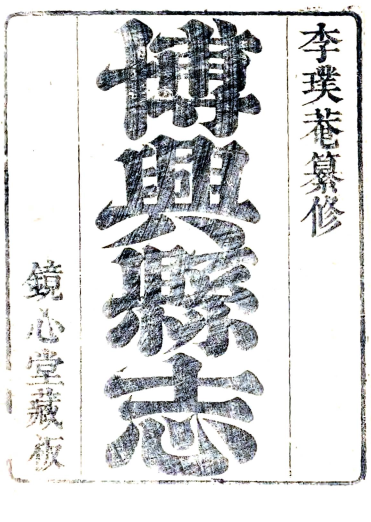 李璞菴纂修
博興縣志
鏡心堂藏板